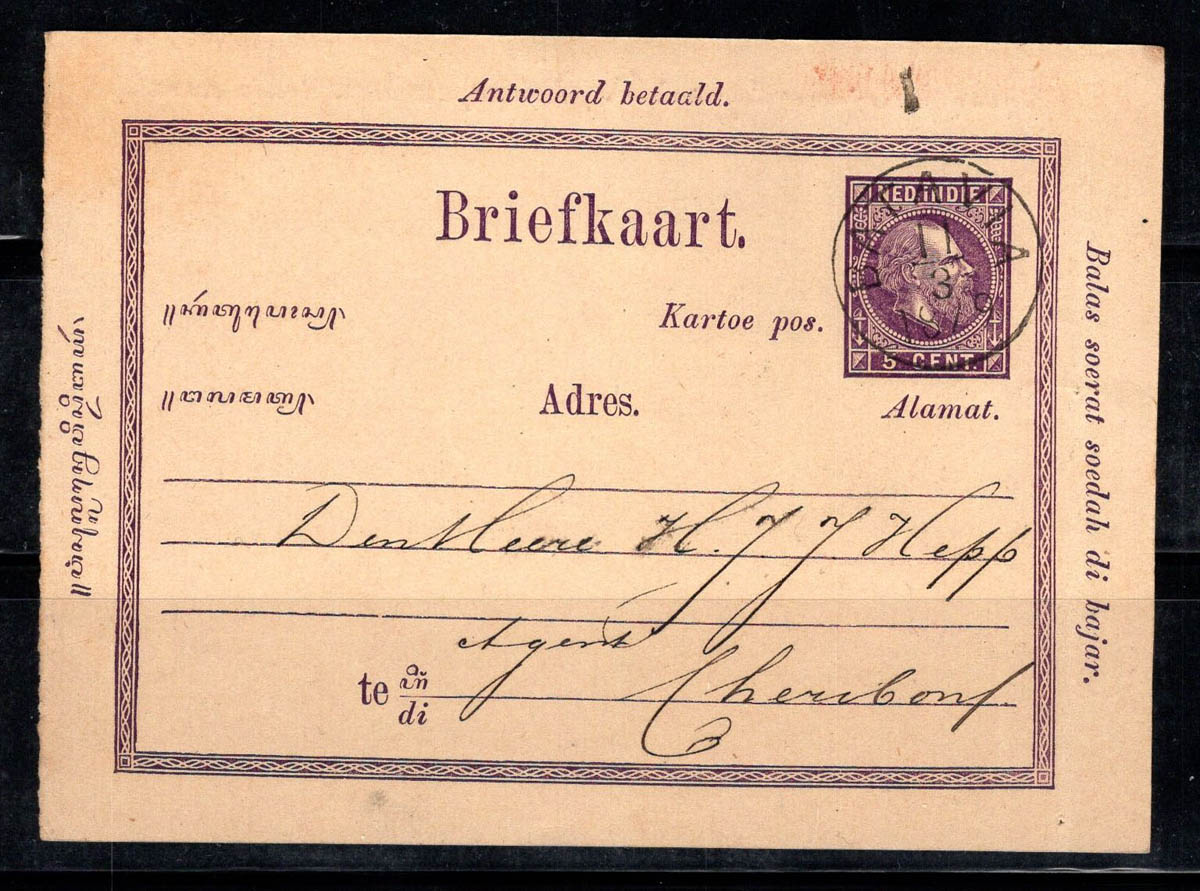 Antwoord betaald.
Briefkaart.
NED INDIE
5 CENT.
BATAVIA
11
3
187
Kartoe pos.
Adres.
Alamat.
Balas soerat soedah di bajar.
Den Heere H. J J Hepp
Agent
te
di
Cheribon